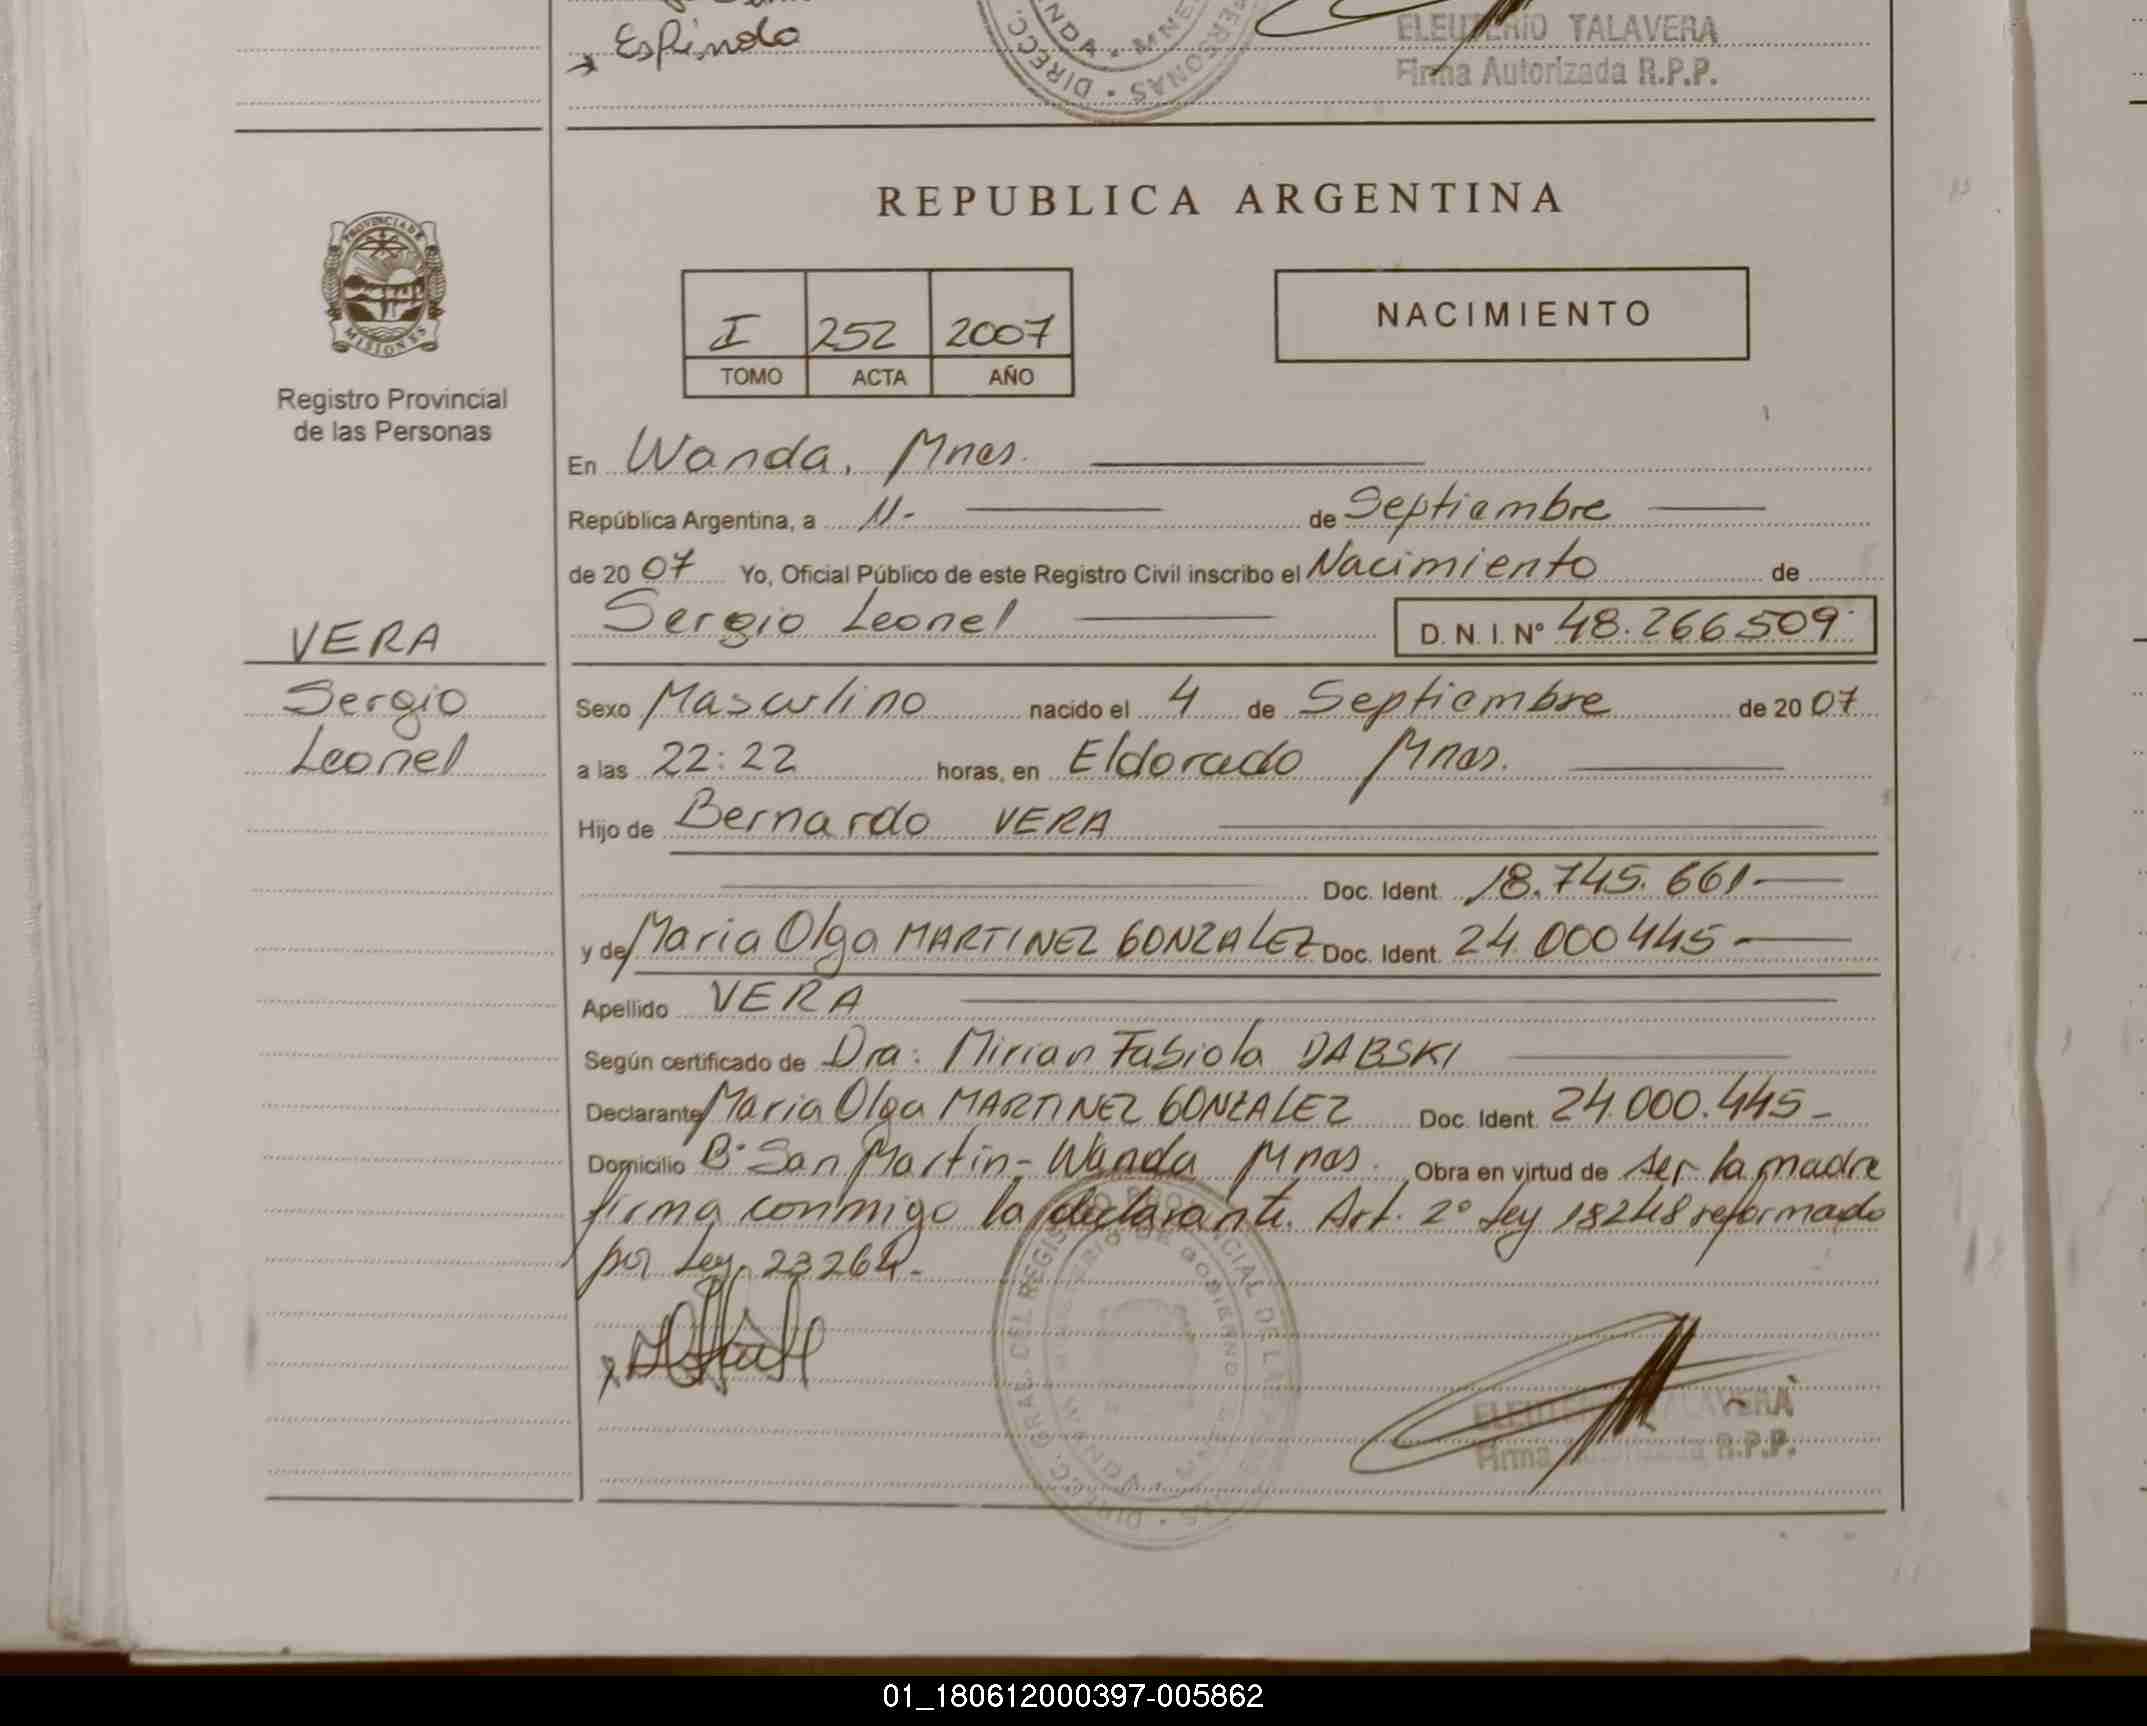 Espindola
ELEUTERIO TALAVERA
Firma Autorizada R.P.P.
DIRECC. PERSONAS
REPUBLICA ARGENTINA
PROVINCIA DE MISIONES
I 252 2007
TOMO ACTA AÑO
NACIMIENTO
Registro Provincial
de las Personas
En Wanda, Mnes.
República Argentina, a 11- de Septiembre
de 2007 Yo, Oficial Público de este Registro Civil inscribo el Nacimiento de
Sergio Leonel D. N. I. Nº 48.266509
VERA
Sergio
Leonel
Sexo Masculino nacido el 4 de Septiembre de 2007
a las 22:22 horas, en Eldorado Mnes.
Hijo de Bernardo VERA
Doc. Ident. 18.745.661
y de Maria Olga MARTINEZ GONZALEZ Doc. Ident. 24.000445
Apellido VERA
Según certificado de Dra: Mirian Fabiola DABSKI
Declarante Maria Olga MARTINEZ GONZALEZ Doc. Ident. 24.000.445-
Domicilio Bº San Martin- Wanda Mnes. Obra en virtud de ser la madre
firma conmigo la declarante. Art. 2º Ley 18248 reformado
por Ley 23264-
DIRECC. GRAL. DEL REGISTRO PROVINCIAL DE LAS PERSONAS
MINISTERIO DE GOBIERNO
WANDA
ELEUTERIO TALAVERA
Firma Autorizada R.P.P.
01_180612000397-005862